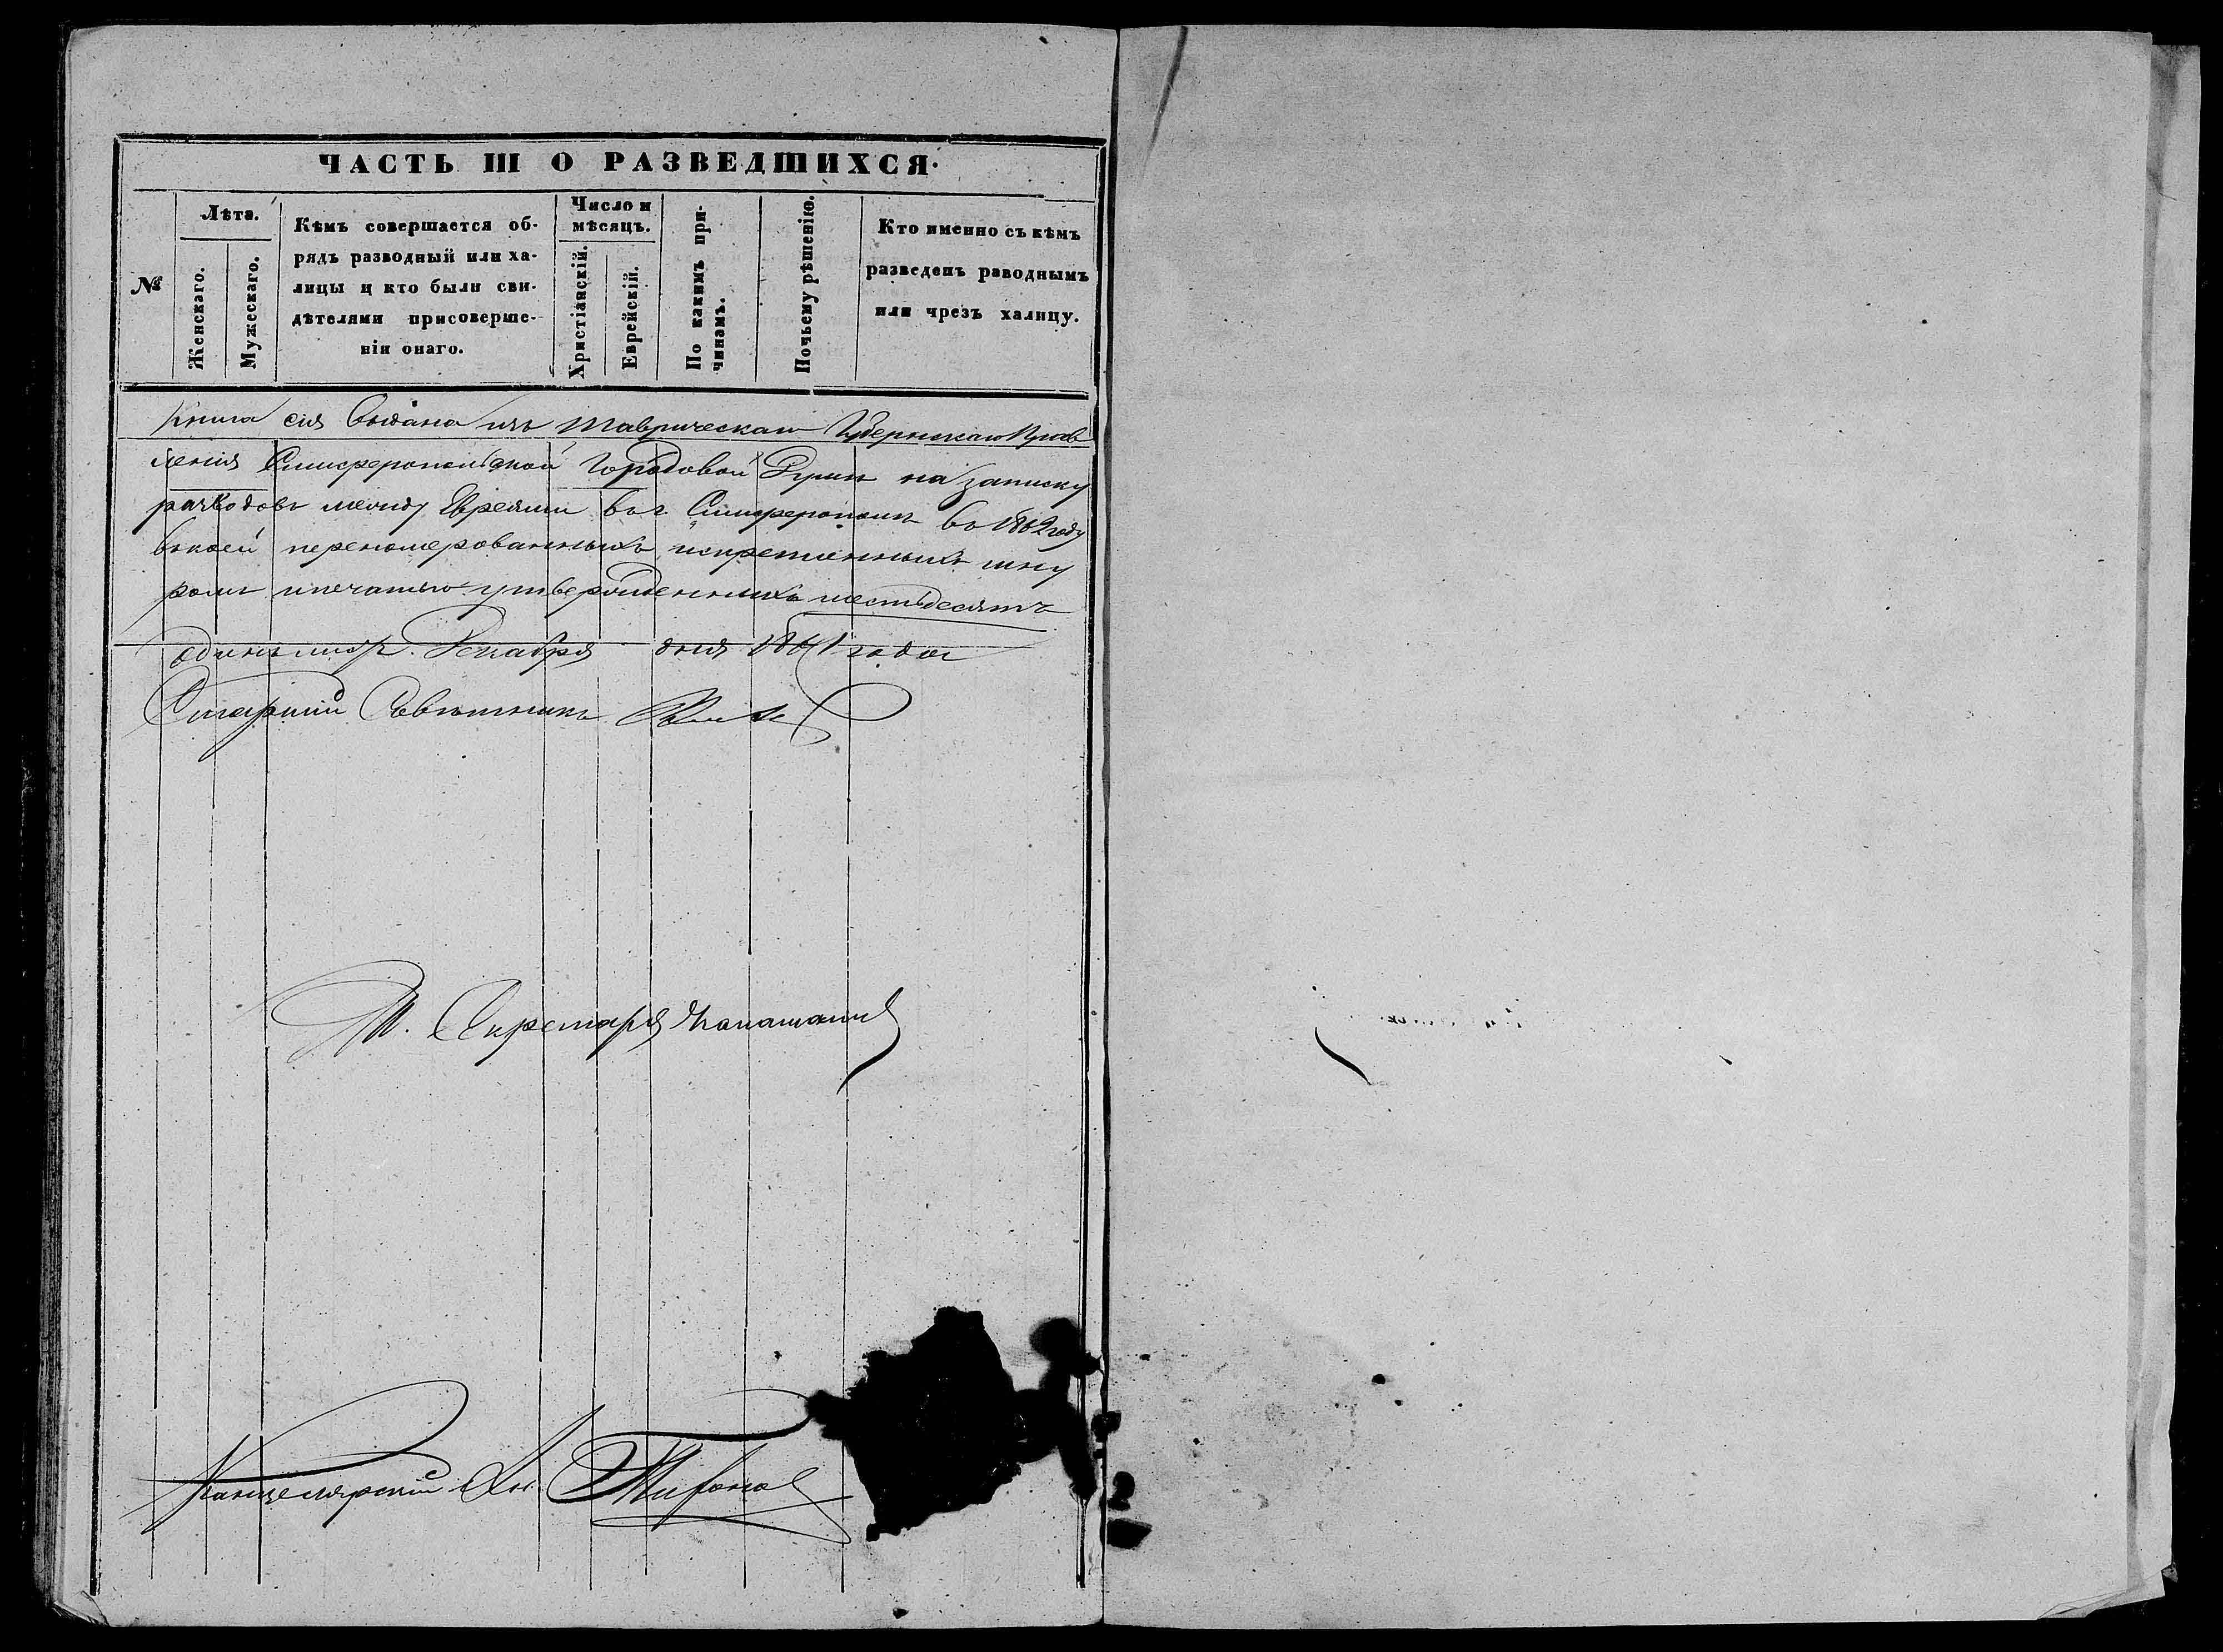 ЧАСТЬ III О РАЗВЕДШИХСЯ.
№
Лѣта.
Женскаго.
Мужескаго.
Кѣмъ совершается об-
рядъ разводный или ха-
лицы и кто были сви-
дѣтелями присоверше-
ніи онаго.
Число и
мѣсяцъ.
Христіанскій.
Еврейскій.
По какимъ при-
чинамъ.
Почьему рѣшенію.
Кто именно съ кѣмъ
разведенъ раводнымъ
или чрезъ халицу.
Книга сія выдана изъ Таврическаго Губернскаго Прав
ленія Симферопольской Городовой Думѣ на записку
разводовъ между Евреями въ г. Симферополѣ въ 1862 году
въ коей переномерованныхъ искрепленныхъ шну
ромъ ипечатью утвержденныхъ шестьдесятъ
одинъ листъ. Декабря дня 1861 года
Старшій Совѣтникъ
Секретаря
Канцелярскій